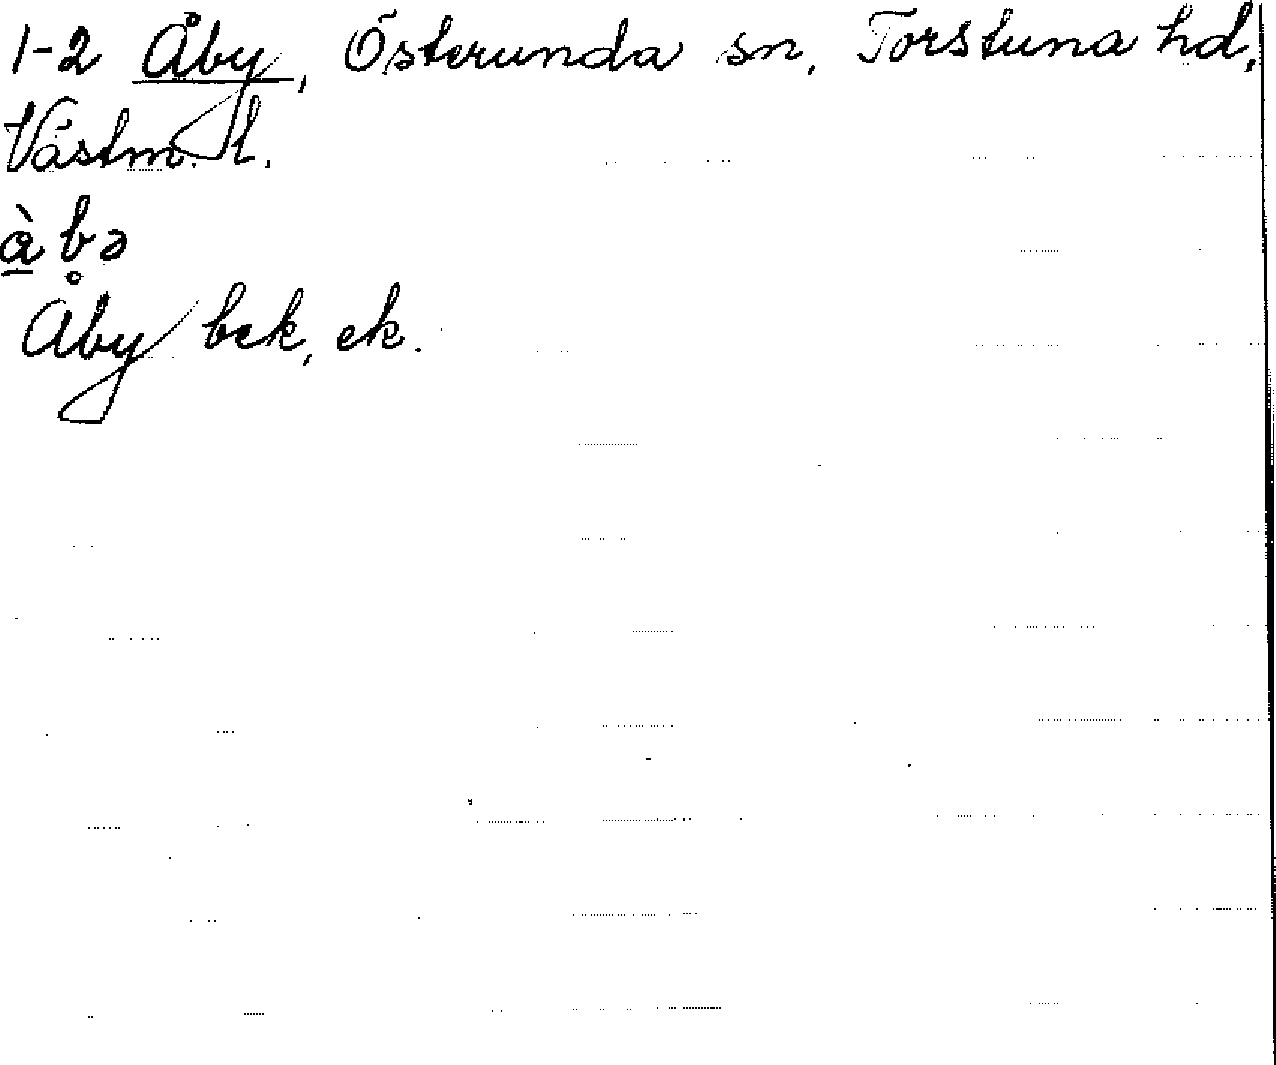 1-2 Åby, Österunda sn, Torstuna hd,
Västm. l.
å̀ b̥ə
Åby bek, ek.